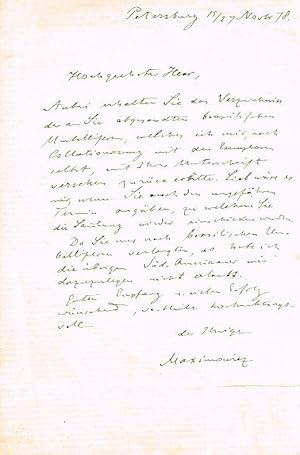 Petersburg 15/27 Novbr 78.
Hochgeehrter Herr,
Anbei erhalten Sie das Verzeichniss
der an Sie abgesandten brasilischen
Umbelliferen, welches ich mir, nach
Collationirung mit den Exemplaren
selbst, mit Ihrer Unterschrift
versehen zurück erbitte. Lieb wäre es
mir, wenn Sie auch den ungefähren
Termin angäben, zu welchem Sie
die Sendung wieder einschicken werden.
Da Sie nur nach brasilischen Um-
belliferen verlangten, so habe ich
die übrigen Süd-Amerikaner mir
dazuzulegen nicht erlaubt.
Guten Empfang u. vielen Erfolg
wünschend, verbleibe hochachtungs-
voll
der Ihrige
Maximowicz